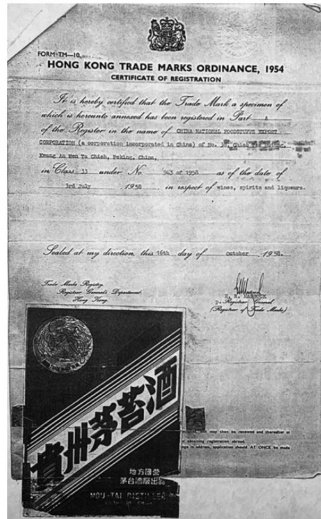 FORM-TM-10.
HONG KONG TRADE MARKS ORDINANCE, 1954
CERTIFICATE OF REGISTRATION
It is hereby certified that the Trade Mark a specimen of
which is hereunto annexed has been registered in Part
of the Register in the name of CHINA NATIONAL FOODSTUFFS EXPORT
CORPORATION (a corporation incorporated in China) of No.
Kwang An Men Ta Chieh, Peking, China,
in Class 33 under No. 563 of 1958 as of the date of
3rd July 1958 in respect of wines, spirits and liqueurs.
Sealed at my direction, this 16th day of October 1958.
Trade Marks Registry,
Registrar General's Department,
Hong Kong.
Registrar General
(Registrar of Trade Marks)
貴州茅苔酒
地方國營
茅台酒廠出品
MOU-TAI DISTILLERY
may then be renewed and thereafter at
obtaining registration abroad.
application should AT ONCE be made